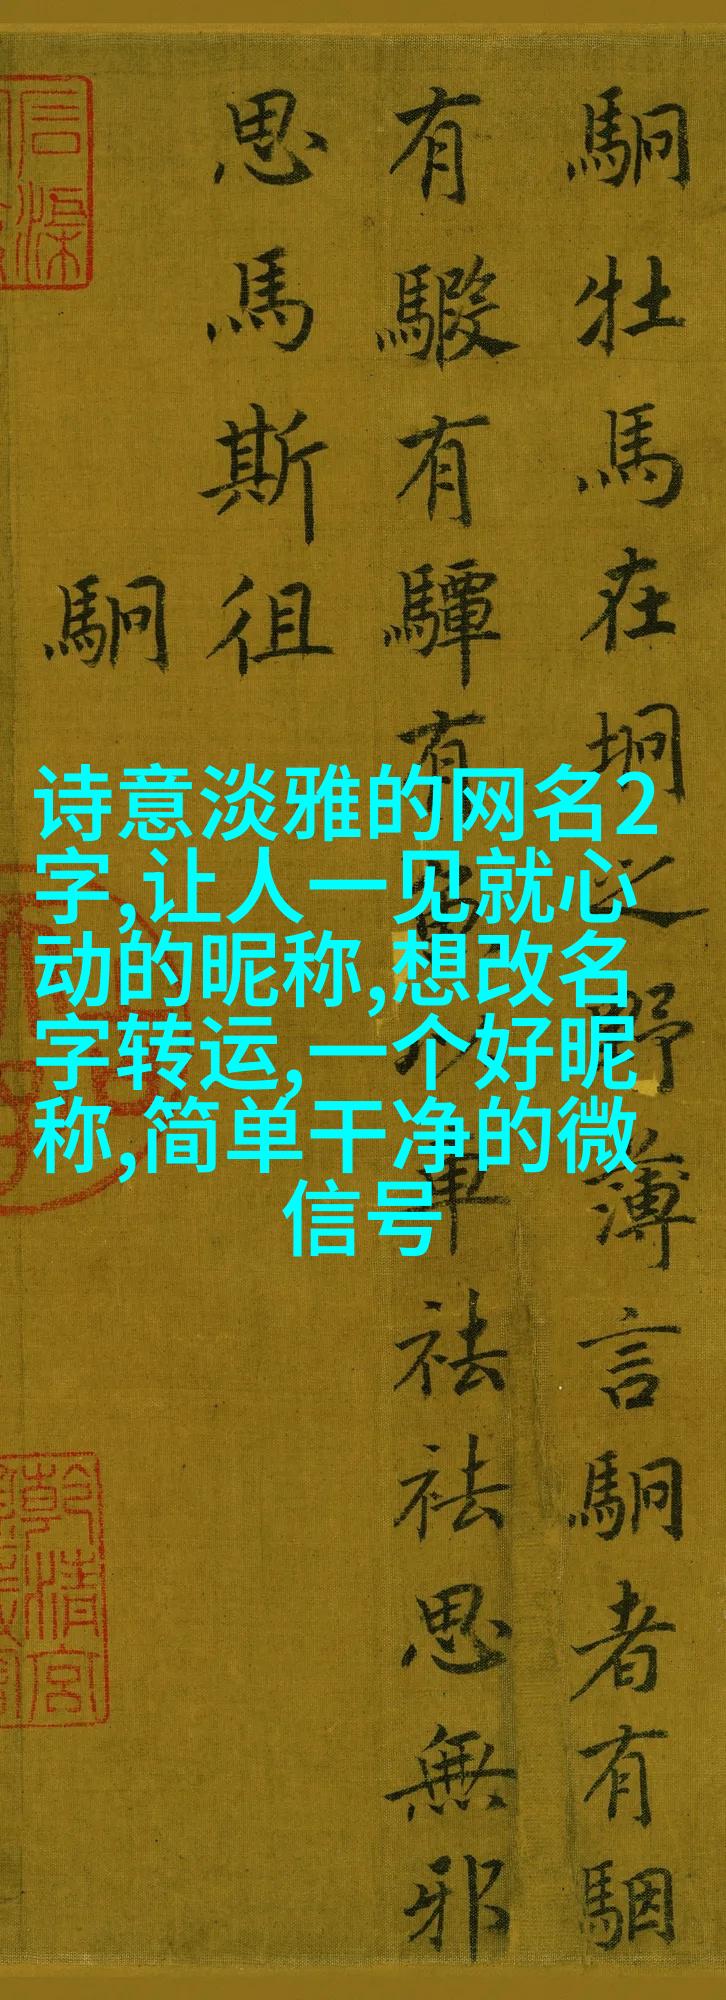 駉牡馬在坰之野薄言駉者有駰
有騢有驔有魚以車祛祛思無邪
思馬斯徂
駉
诗意淡雅的网名2
字,让人一见就心
动的昵称,想改名
字转运,一个好昵
称,简单干净的微
信号
乾清宮